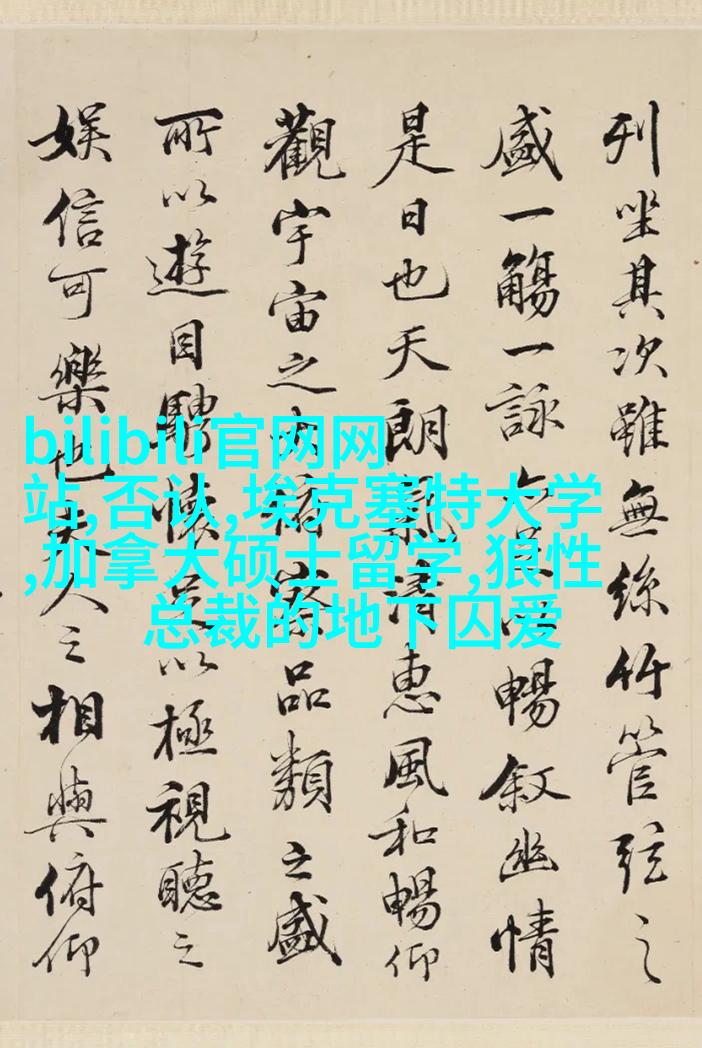 列坐其次雖無絲竹管弦之
盛一觴一詠亦足以暢叙幽情
是日也天朗氣清惠風和暢仰
觀宇宙之大俯察品類之盛
所以遊目騁懷足以極視聽之
娛信可樂也夫人之相與俯仰
bilibili官网网
站,否认,埃克塞特大学
,加拿大硕士留学,狼性
总裁的地下囚爱